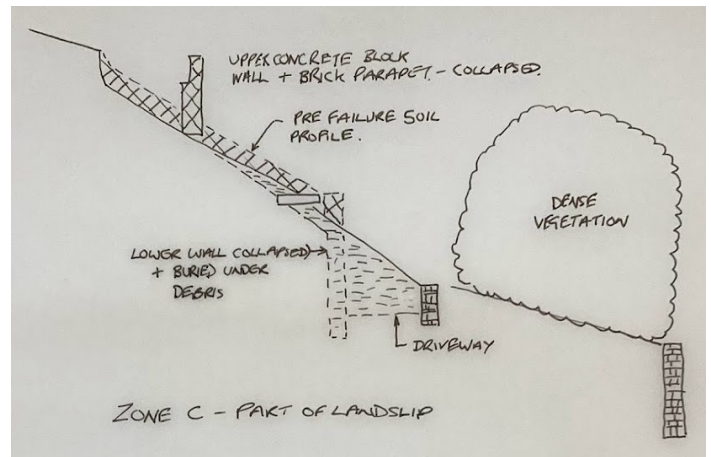 UPPER CONCRETE BLOCK
WALL + BRICK PARAPET. - COLLAPSED.
PRE FAILURE SOIL
PROFILE.
DENSE
VEGETATION
LOWER WALL COLLAPSED
+ BURIED UNDER
DEBRIS
DRIVEWAY
ZONE C - PART OF LANDSLIP